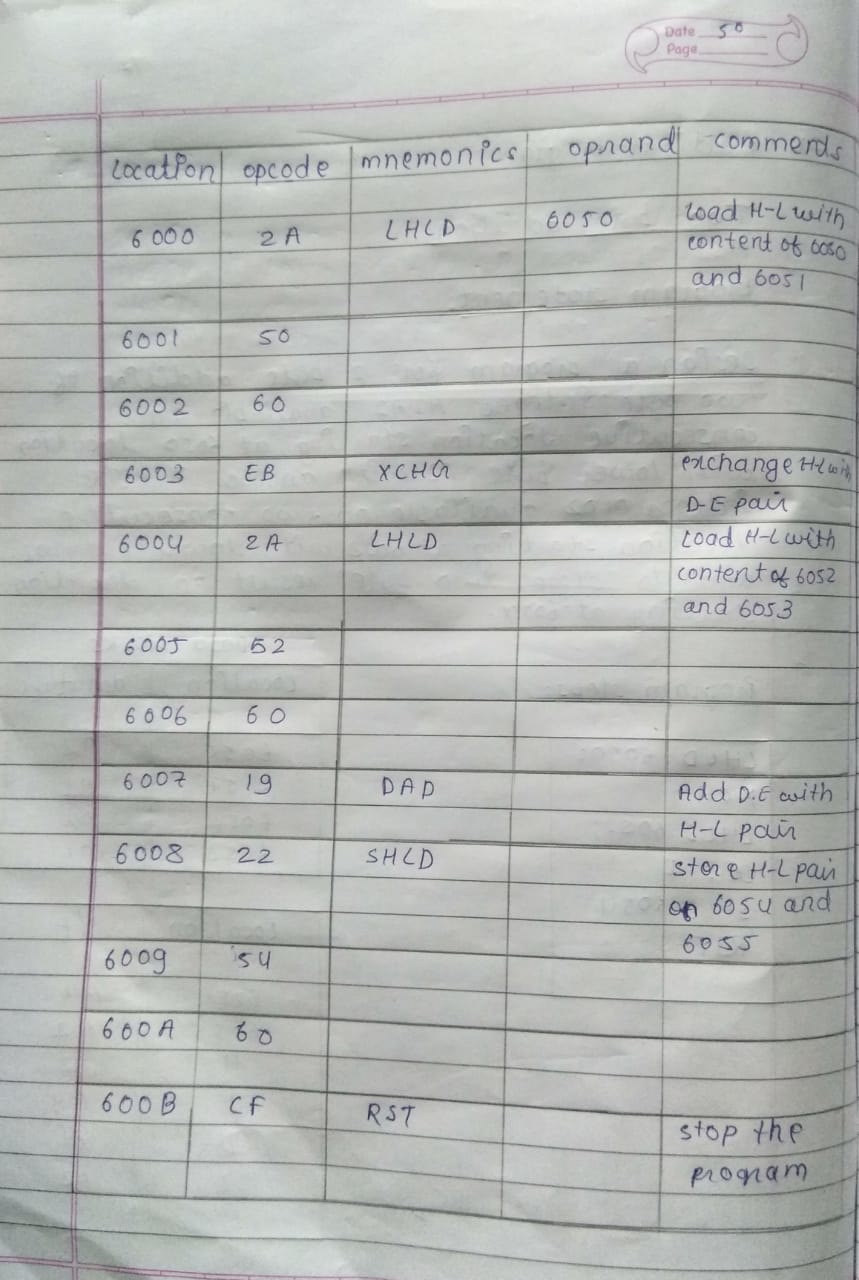 Date 50
Page
location opcode mnemonics oprand commends
6000 2A LHLD 6050 Load H-L with
content of 6050
and 6051
6001 50
6002 60
6003 EB XCHG exchange H-L with
D-E pair
6004 2A LHLD Load H-L with
content of 6052
and 6053
6005 52
6006 60
6007 19 DAD Add D.E with
H-L pair
6008 22 SHLD store H-L pair
on 6054 and
6055
6009 54
600A 60
600B CF RST stop the
program